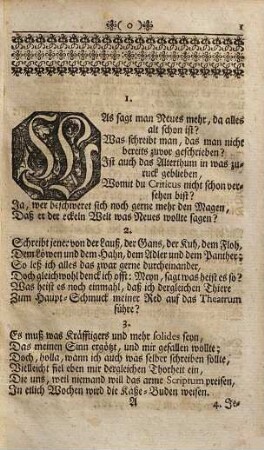 ( o ) 1
1.
Was sagt man Neues mehr, da alles
alt schon ist?
Was schreibt man, das man nicht
bereits zuvor geschrieben?
Ist auch das Alterthum in was zu-
ruck geblieben,
Womit du Criticus nicht schon ver-
sehen bist?
Ja, wer beschweret sich noch gerne mehr den Magen,
Daß er der eckeln Welt was Neues wollte sagen?
2.
Schreibt jener von der Lauß, der Gans, der Kuh, dem Floh,
Dem Löwen und dem Hahn, dem Adler und dem Panther;
So leß ich alles das zwar gerne durcheinander,
Doch gleichwohl denck ich offt: Meyn, sagt was heist es so?
Was heist es noch einmahl, daß ich dergleichen Thiere
Zum Haupt-Schmuck meiner Red auf das Theatrum
führe?
3.
Es muß was Kräfftigers und mehr solides seyn,
Das meinen Sinn ergötzt, und mir gefallen wollte;
Doch, holla, wann ich auch was selber schreiben sollte,
Vielleicht fiel eben mir dergleichen Thorheit ein,
Die uns, weil niemand will das arme Scriptum preisen,
In etlich Wochen wird die Käße-Buden weisen.
A 4. Je-